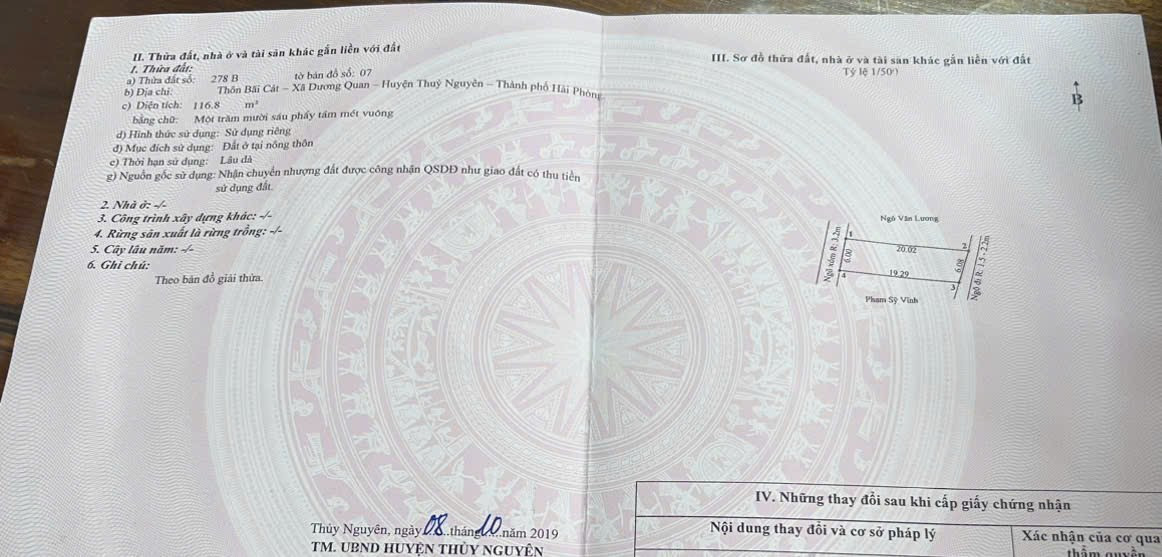 II. Thửa đất, nhà ở và tài sản khác gắn liền với đất
1. Thửa đất:
a) Thửa đất số: 278 B tờ bản đồ số: 07
b) Địa chỉ: Thôn Bãi Cát - Xã Dương Quan - Huyện Thuỷ Nguyên - Thành phố Hải Phòng
c) Diện tích: 116.8 m²
bằng chữ: Một trăm mười sáu phẩy tám mét vuông
d) Hình thức sử dụng: Sử dụng riêng
đ) Mục đích sử dụng: Đất ở tại nông thôn
e) Thời hạn sử dụng: Lâu dà
g) Nguồn gốc sử dụng: Nhận chuyển nhượng đất được công nhận QSDĐ như giao đất có thu tiền
sử dụng đất.
2. Nhà ở: -/-
3. Công trình xây dựng khác: -/-
4. Rừng sản xuất là rừng trồng: -/-
5. Cây lâu năm: -/-
6. Ghi chú:
Theo bản đồ giải thửa.
Thủy Nguyên, ngày 08 tháng 10 năm 2019
TM. UBND HUYỆN THỦY NGUYÊN
III. Sơ đồ thửa đất, nhà ở và tài sản khác gắn liền với đất
Tỷ lệ 1/500
B
Ngô Văn Lương
Ngõ xóm R: 3.2m
1
20.02
2
6.00
6.08
Ngõ đi R: 1.5 - 2.2m
4
19.29
3
Phạm Sỹ Vĩnh
IV. Những thay đổi sau khi cấp giấy chứng nhận
Nội dung thay đổi và cơ sở pháp lý
Xác nhận của cơ qua
thẩm quyền